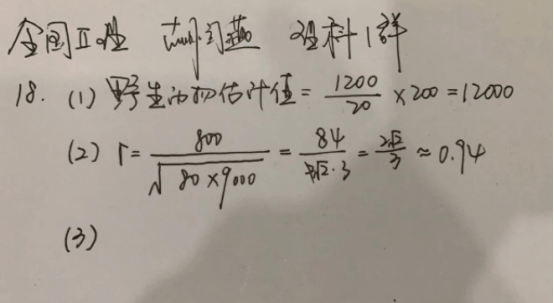 全国II卷 理科1群
18. (1) 野生动物估计值 = 1200/20 × 200 = 12000
(2) r = 800/√(80×9000) = 84/(√2·3) = 2√2/3 ≈ 0.94
(3)